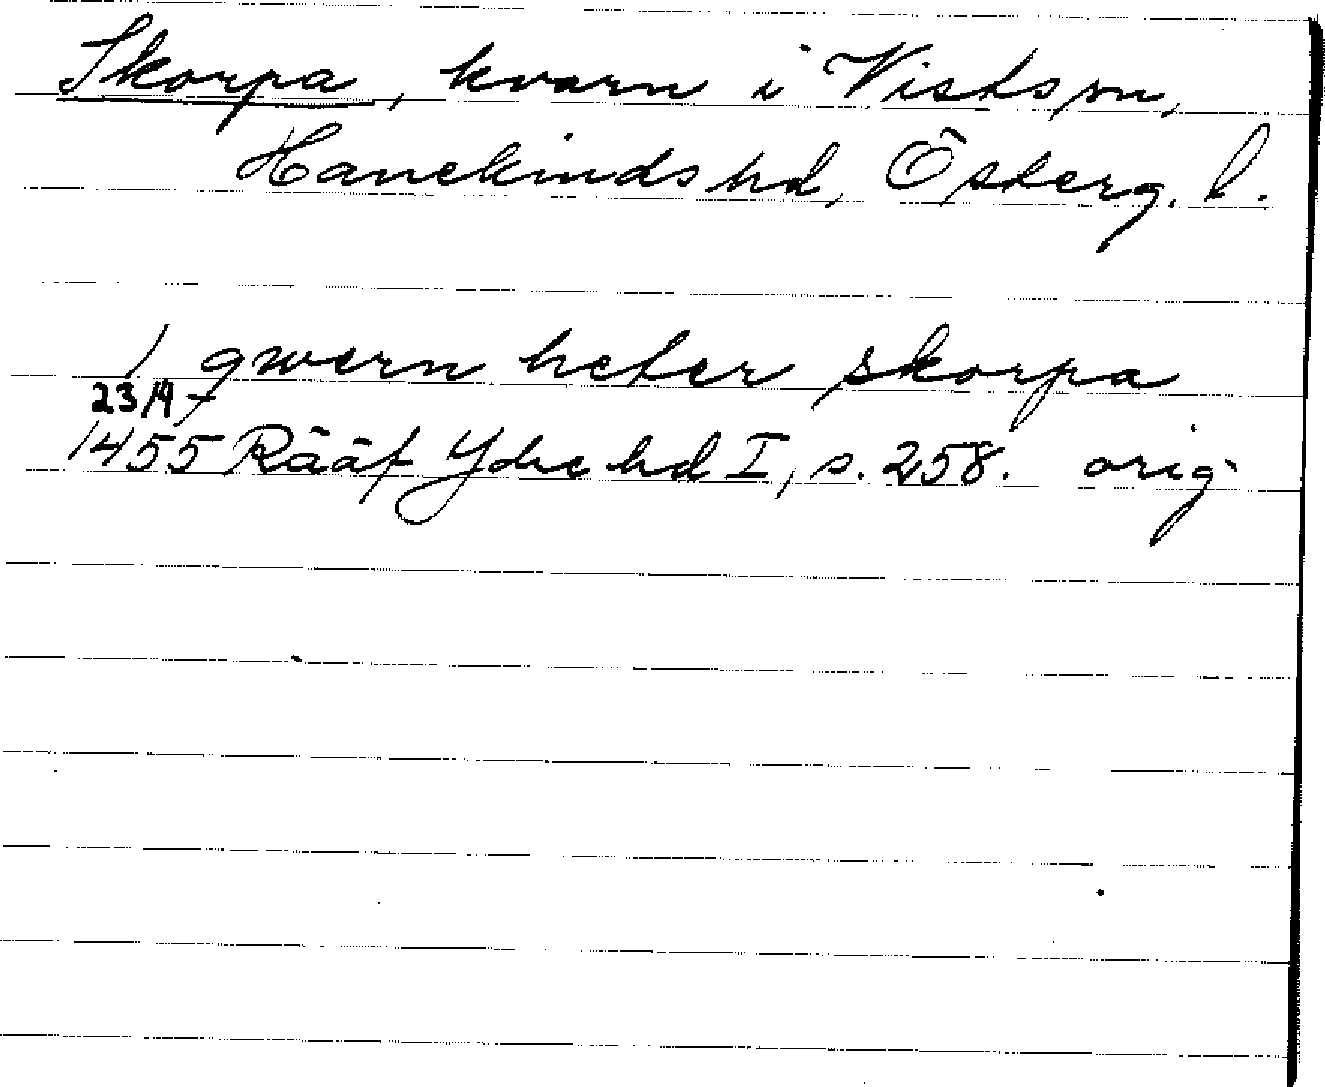 Skorpa, kvarn i Vists sn,
Hanekinds hd, Österg. l.
1 qwern heter skorpa
23/4
1455 Rääf Ydre hd I, s. 258. orig.